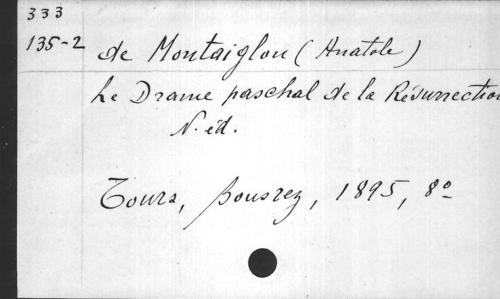 333
135-2
de Montaiglon (Anatole)
Le Drame paschal de la Résurrection
N. éd.
Tours, Bousrez, 1895, 8º